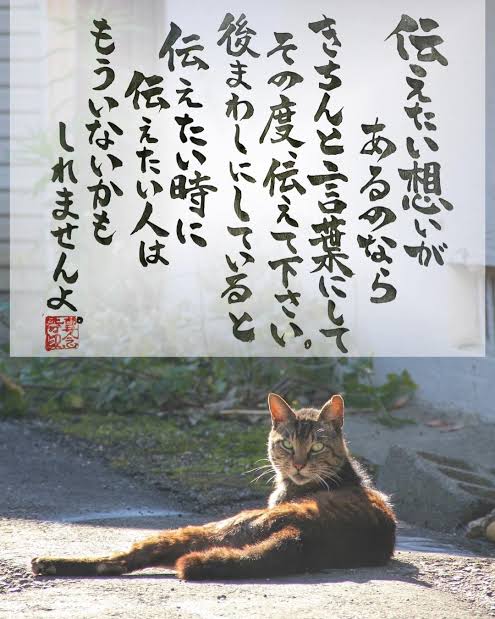 伝えたい想いが
あるのなら
きちんと言葉にして
その度、伝えて下さい。
後まわしにしていると
伝えたい時に
伝えたい人は
もういないかも
しれませんよ。